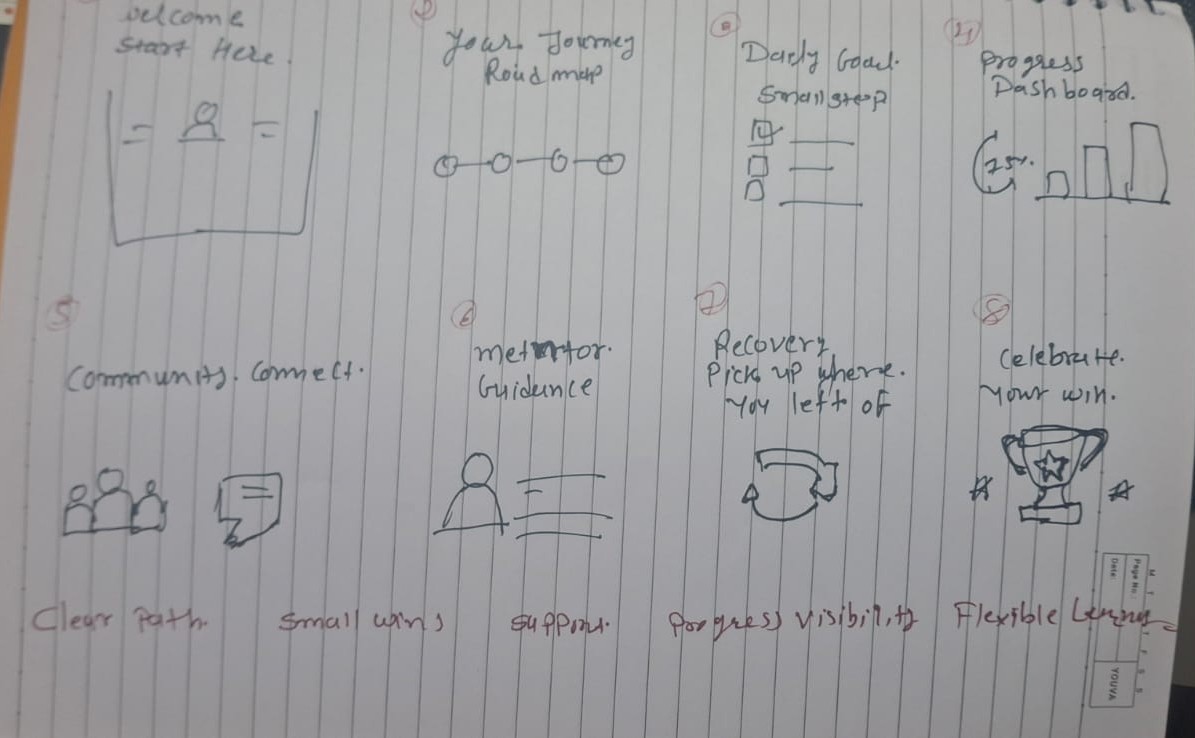 Welcome
Start Here.
2
Your Journey
Road map
Daily Goal.
Small step
4
Progress
Dashboard.
75%.
5
Community. Connect.
6
Guidance
7
Recovery
Pick up where.
you left of
8
Celebrate.
Your win.
Clear Path.
Small wins
Support.
Progress visibility
Flexible
Page No.:
Date:
YOUVA